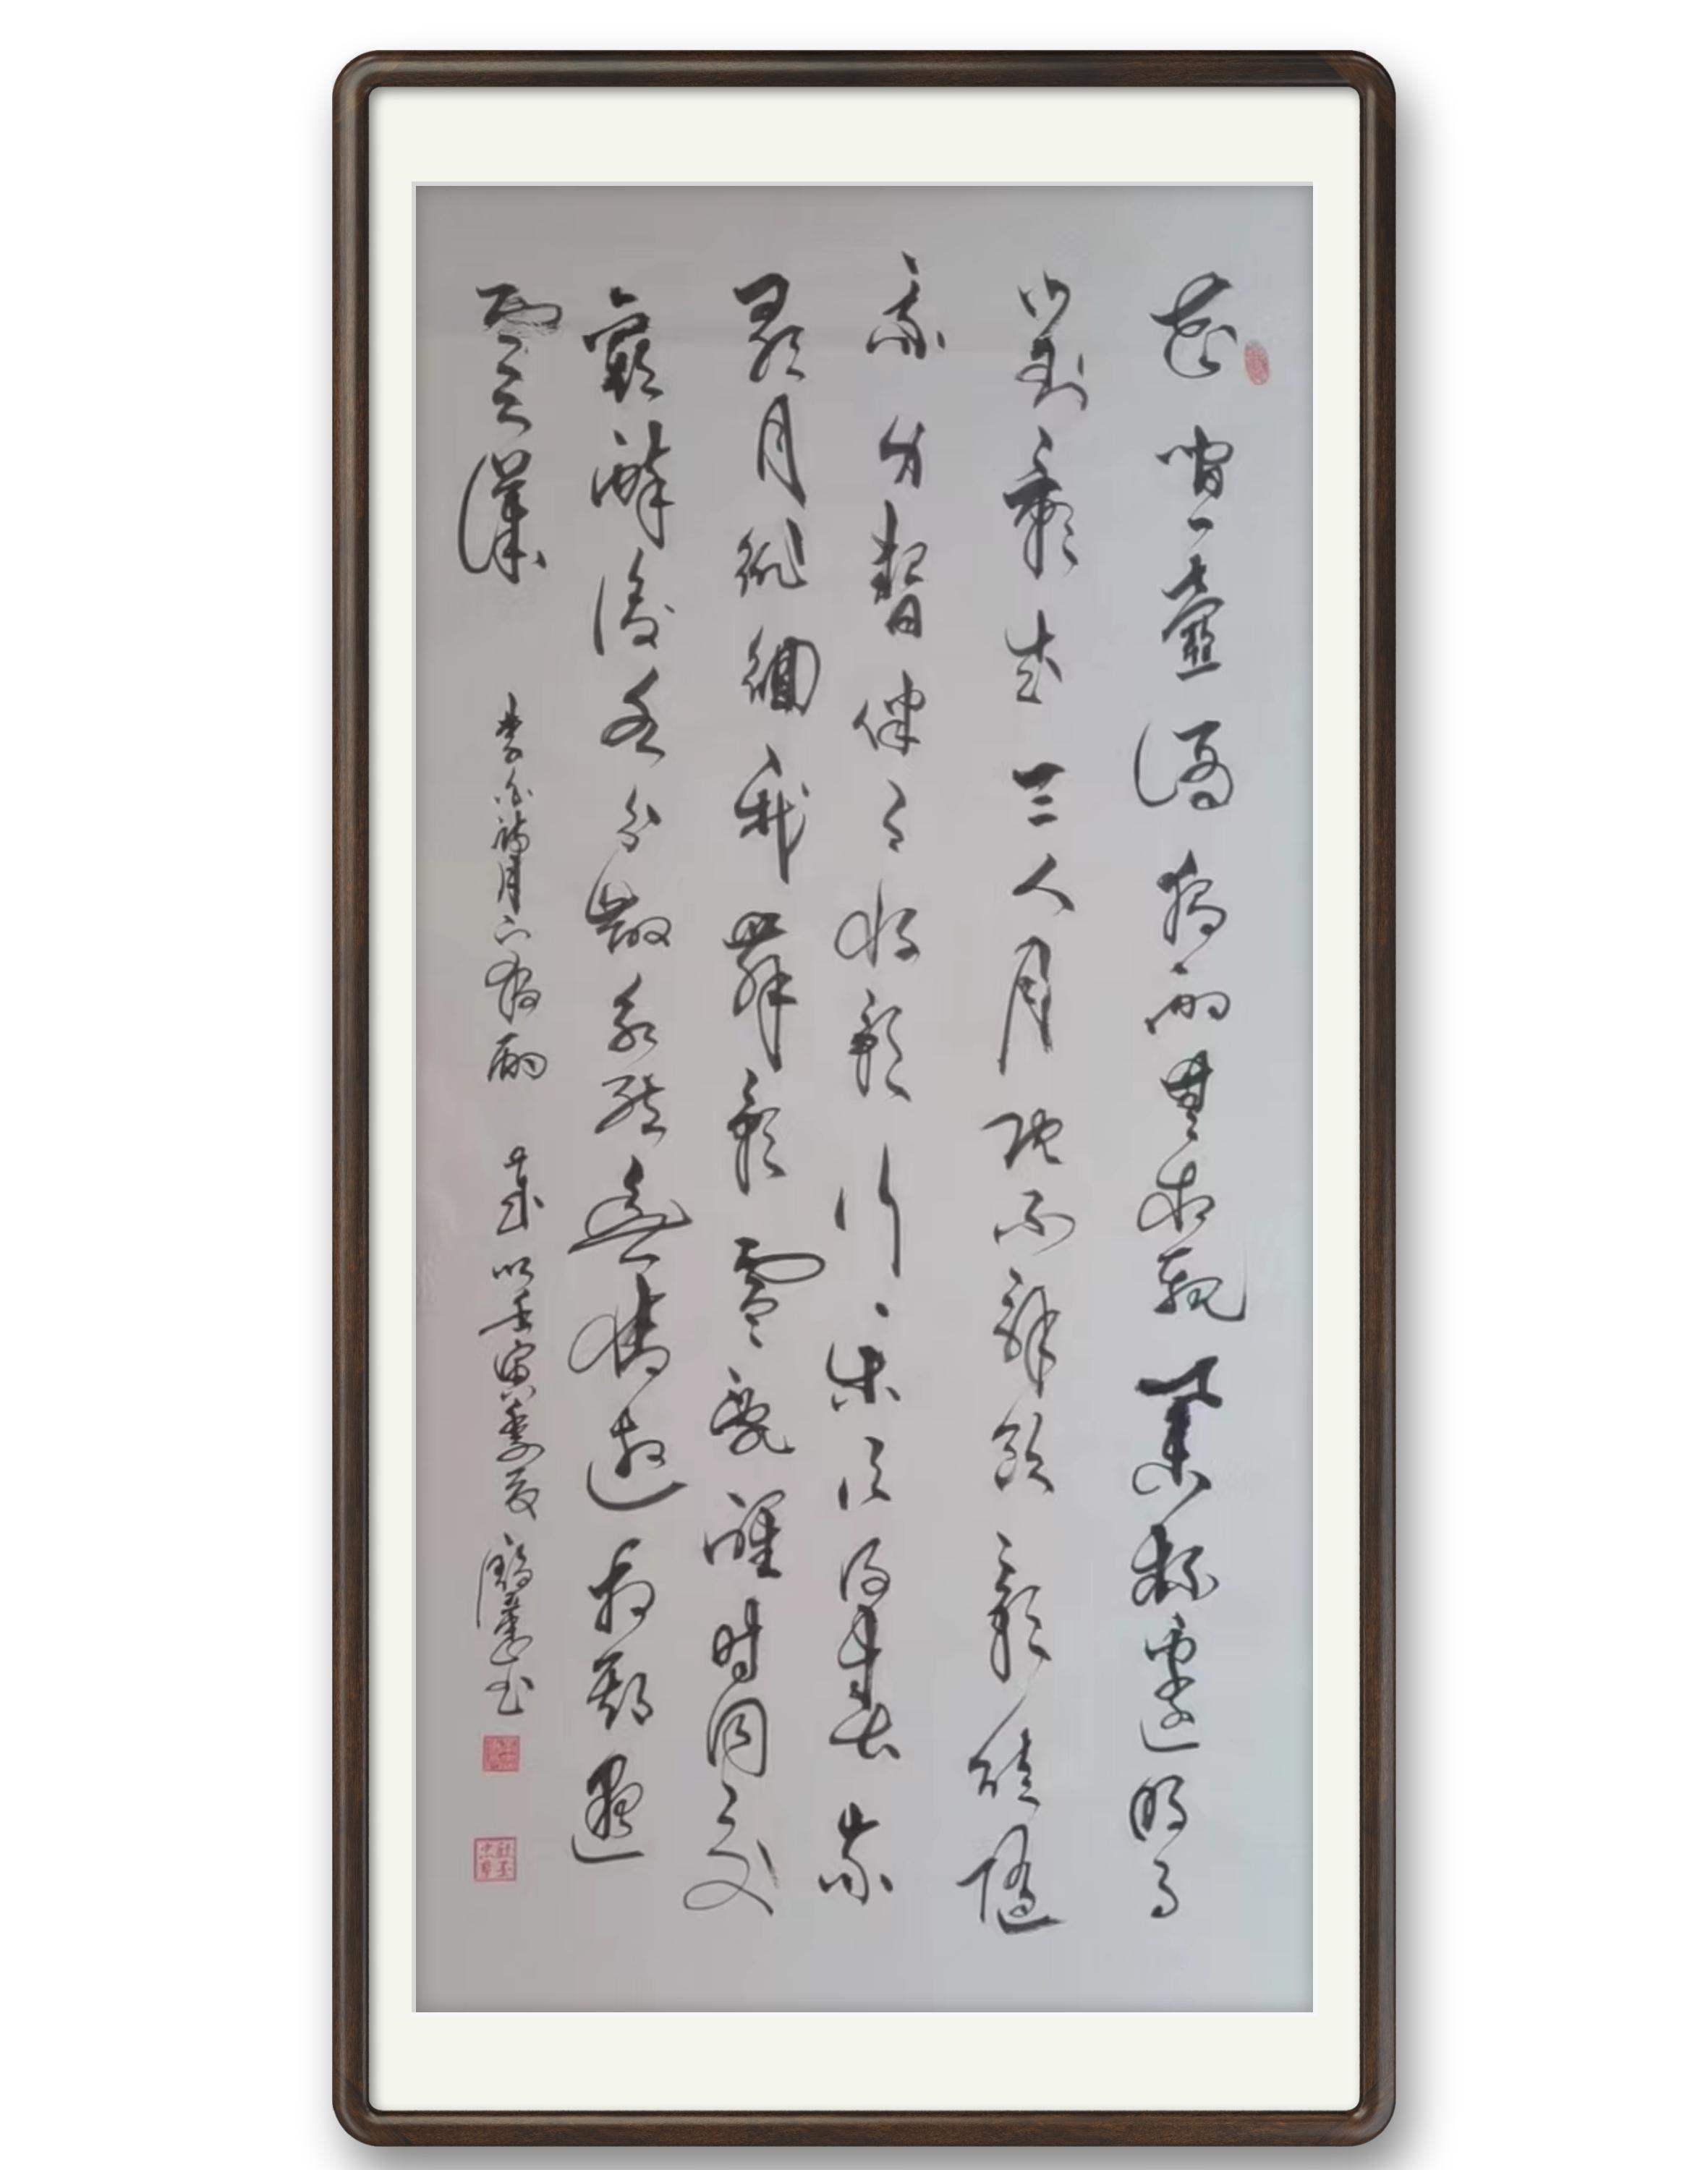 花間一壺酒獨酌無相親舉杯邀明月
對影成三人月既不解飲影徒隨
我身暫伴月將影行樂須及春我
歌月徘徊我舞影零亂醒時同交
歡醉後各分散永結無情遊相期邈
雲漢 李白詩月下獨酌 歲次壬寅季夏 書